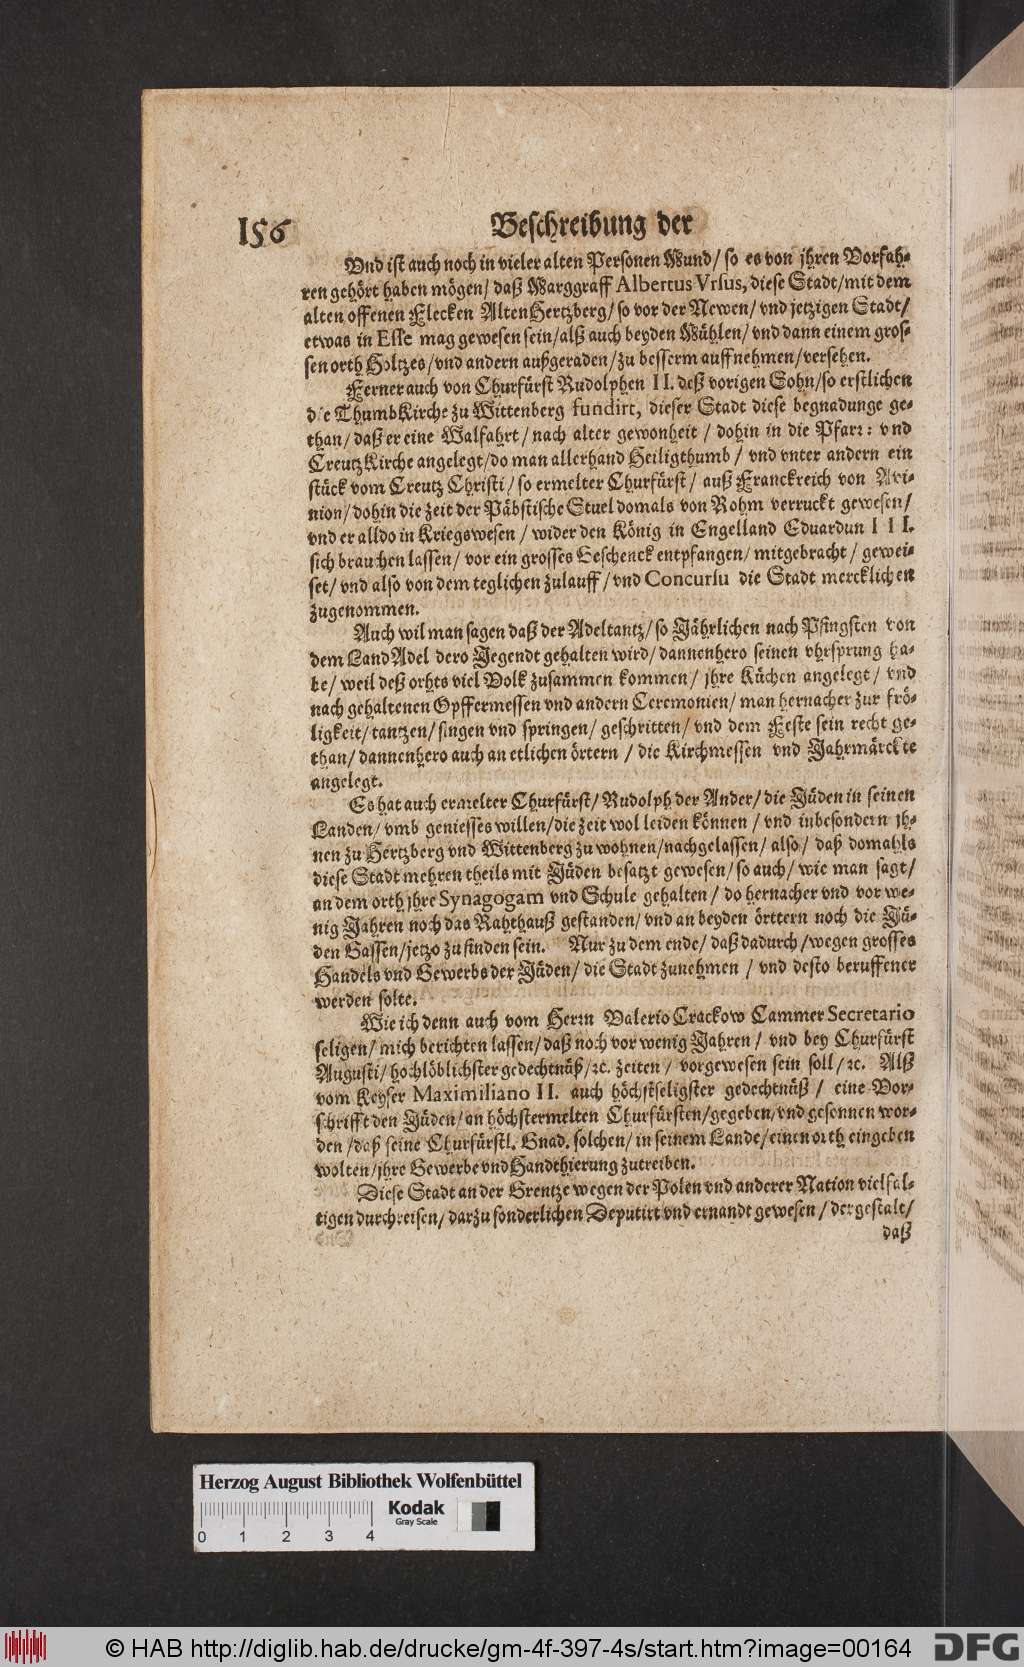 156 Beschreibung der
Vnd ist auch noch in vieler alten Personen Mund/ so es von jhren Vorfah-
ren gehört haben mögen/ daß Marggraff Albertus Vrsus, diese Stadt/ mit dem
alten offenen Flecken AltenHertzberg/ so vor der Newen/ vnd jetzigen Stadt/
etwas in Esse mag gewesen sein/ alß auch beyden Mühlen/ vnd dann einem gros-
sen orth Holtzes/ vnd andern außgeraden/ zu besserm auffnehmen/ versehen.
Ferner auch von Churfürst Rudolphen II. deß vorigen Sohn/ so erstlichen
die ThumbKirche zu Wittenberg fundirt, dieser Stadt diese begnadunge ge-
than/ daß er eine Walfahrt/ nach alter gewonheit/ dohin in die Pfarr: vnd
CreutzKirche angelegt/ do man allerhand Heiligthumb/ vnd vnter andern ein
stück vom Creutz Christi/ so ermelter Churfürst/ auß Franckreich von Avi-
nion/ dohin die zeit der Päbstische Stuel domals von Rohm verruckt gewesen/
vnd er alldo in Kriegswesen/ wider den König in Engelland Eduardun III.
sich brauchen lassen/ vor ein grosses Geschenck entpfangen/ mitgebracht/ gewei-
set/ vnd also von dem teglichen zulauff/ vnd Concursu die Stadt mercklichen
zugenommen.
Auch wil man sagen daß der Adeltantz/ so Jährlichen nach Pfingsten von
dem LandAdel dero Jegendt gehalten wird/ dannenhero seinen vhrsprung ha-
be/ weil deß orhts viel Volk zusammen kommen/ jhre Küchen angelegt/ vnd
nach gehaltenen Opffermessen vnd andern Ceremonien/ man hernacher zur frö-
ligkeit/ tantzen/ singen vnd springen/ geschritten/ vnd dem Feste sein recht ge-
than/ dannenhero auch an etlichen örtern/ die Kirchmessen vnd Jahrmärckte
angelegt.
Es hat auch ermelter Churfürst/ Rudolph der Ander/ die Jüden in seinen
Landen/ vmb geniesses willen/ die zeit wol leiden können/ vnd inbesondern jh-
nen zu Hertzberg vnd Wittenberg zu wohnen/ nachgelassen/ also/ daß domahls
diese Stadt mehren theils mit Jüden besatzt gewesen/ so auch/ wie man sagt/
an dem orth jhre Synagogam vnd Schule gehalten/ do hernacher vnd vor we-
nig Jahren noch das Rahthauß gestanden/ vnd an beyden örttern noch die Jü-
den Gassen/ jetzo zu finden sein. Nur zu dem ende/ daß dadurch/ wegen grosses
Handels vnd Gewerbs der Jüden/ die Stadt zunehmen/ vnd desto beruffener
werden solte.
Wie ich denn auch vom Herrn Valerio Crackow Cammer Secretario
seligen/ mich berichten lassen/ daß noch vor wenig Jahren/ vnd bey Churfürst
Augusti/ hochlöblichster gedechtnüß/ ꝛc. zeiten/ vorgewesen sein soll/ ꝛc. Alß
vom Keyser Maximiliano II. auch höchstseligster gedechtnüß/ eine Vor-
schrifft den Jüden/ an höchstermelten Churfürsten/ gegeben/ vnd gesonnen wor-
den/ daß seine Churfürstl. Gnad. solchen/ in seinem Lande/ einen orth eingeben
wolten/ jhre Gewerbe vnd Handthierung zutreiben.
Diese Stadt an der Grentze wegen der Polen vnd anderer Nation vielfal-
tigen durchreisen/ darzu sonderlichen Deputirt vnd ernandt gewesen/ dergestalt/
daß
Herzog August Bibliothek Wolfenbüttel
Kodak
Gray Scale
0 1 2 3 4
© HAB http://diglib.hab.de/drucke/gm-4f-397-4s/start.htm?image=00164
DFG